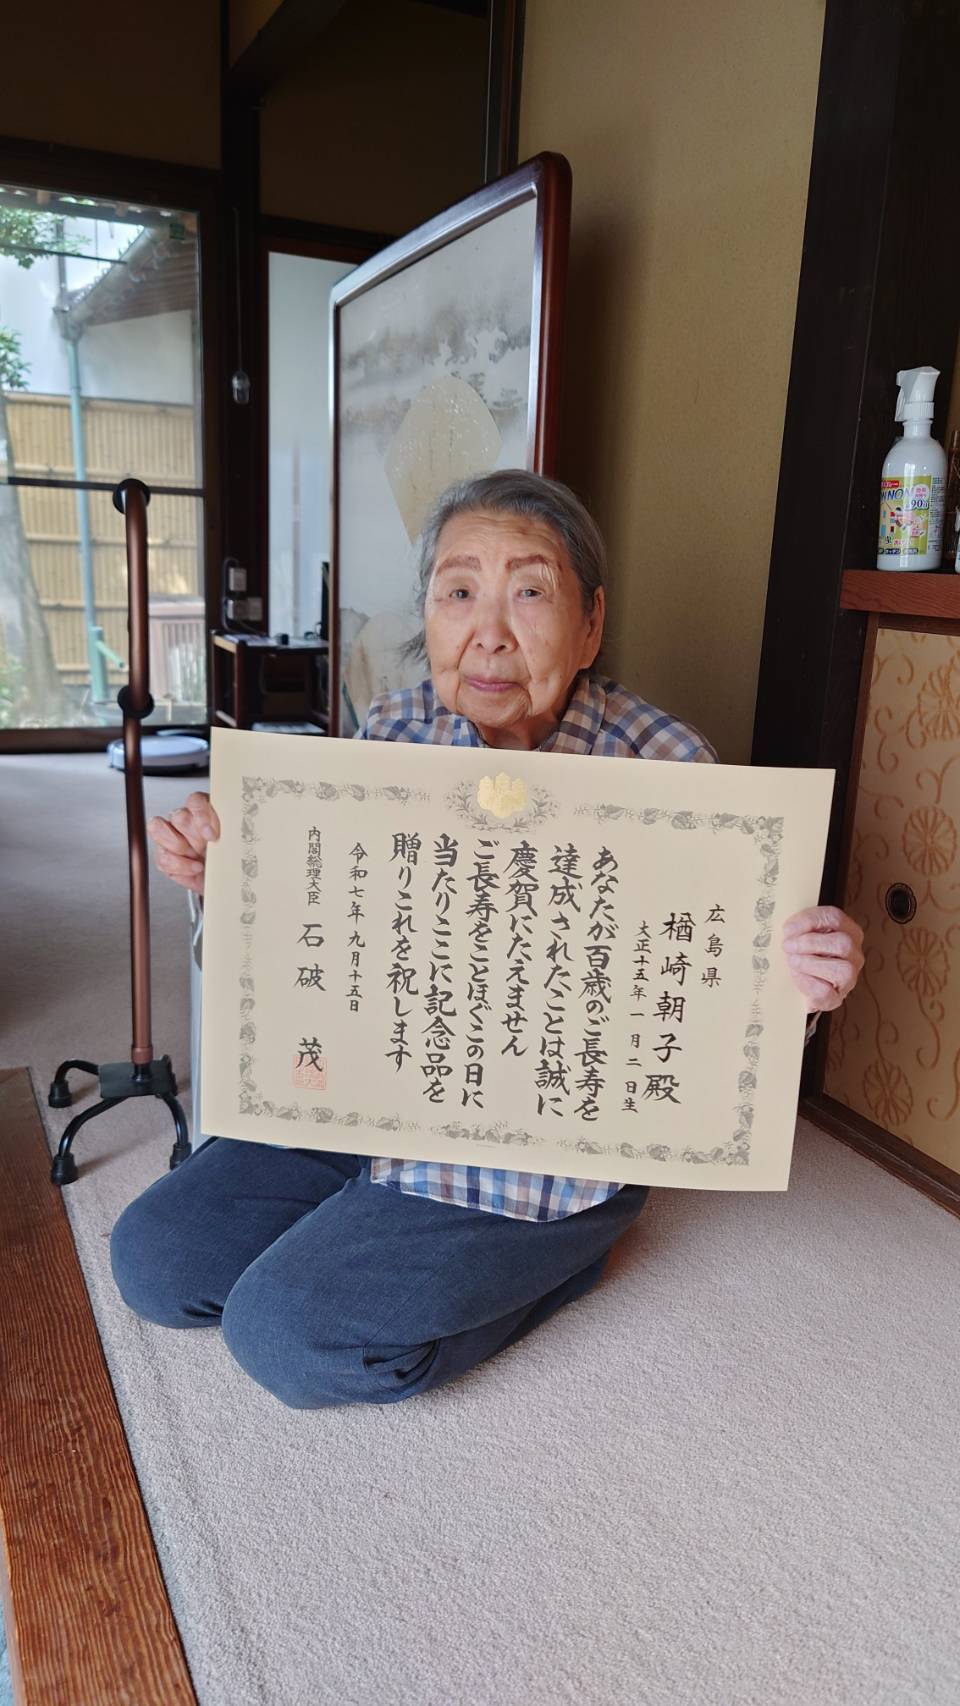 広島県
楢崎朝子殿
大正十五年一月二日生
あなたが百歳のご長寿を
達成されたことは誠に
慶賀にたえません
ご長寿をことほぐこの日に
当たりここに記念品を
贈りこれを祝します
令和七年九月十五日
内閣総理大臣 石破 茂